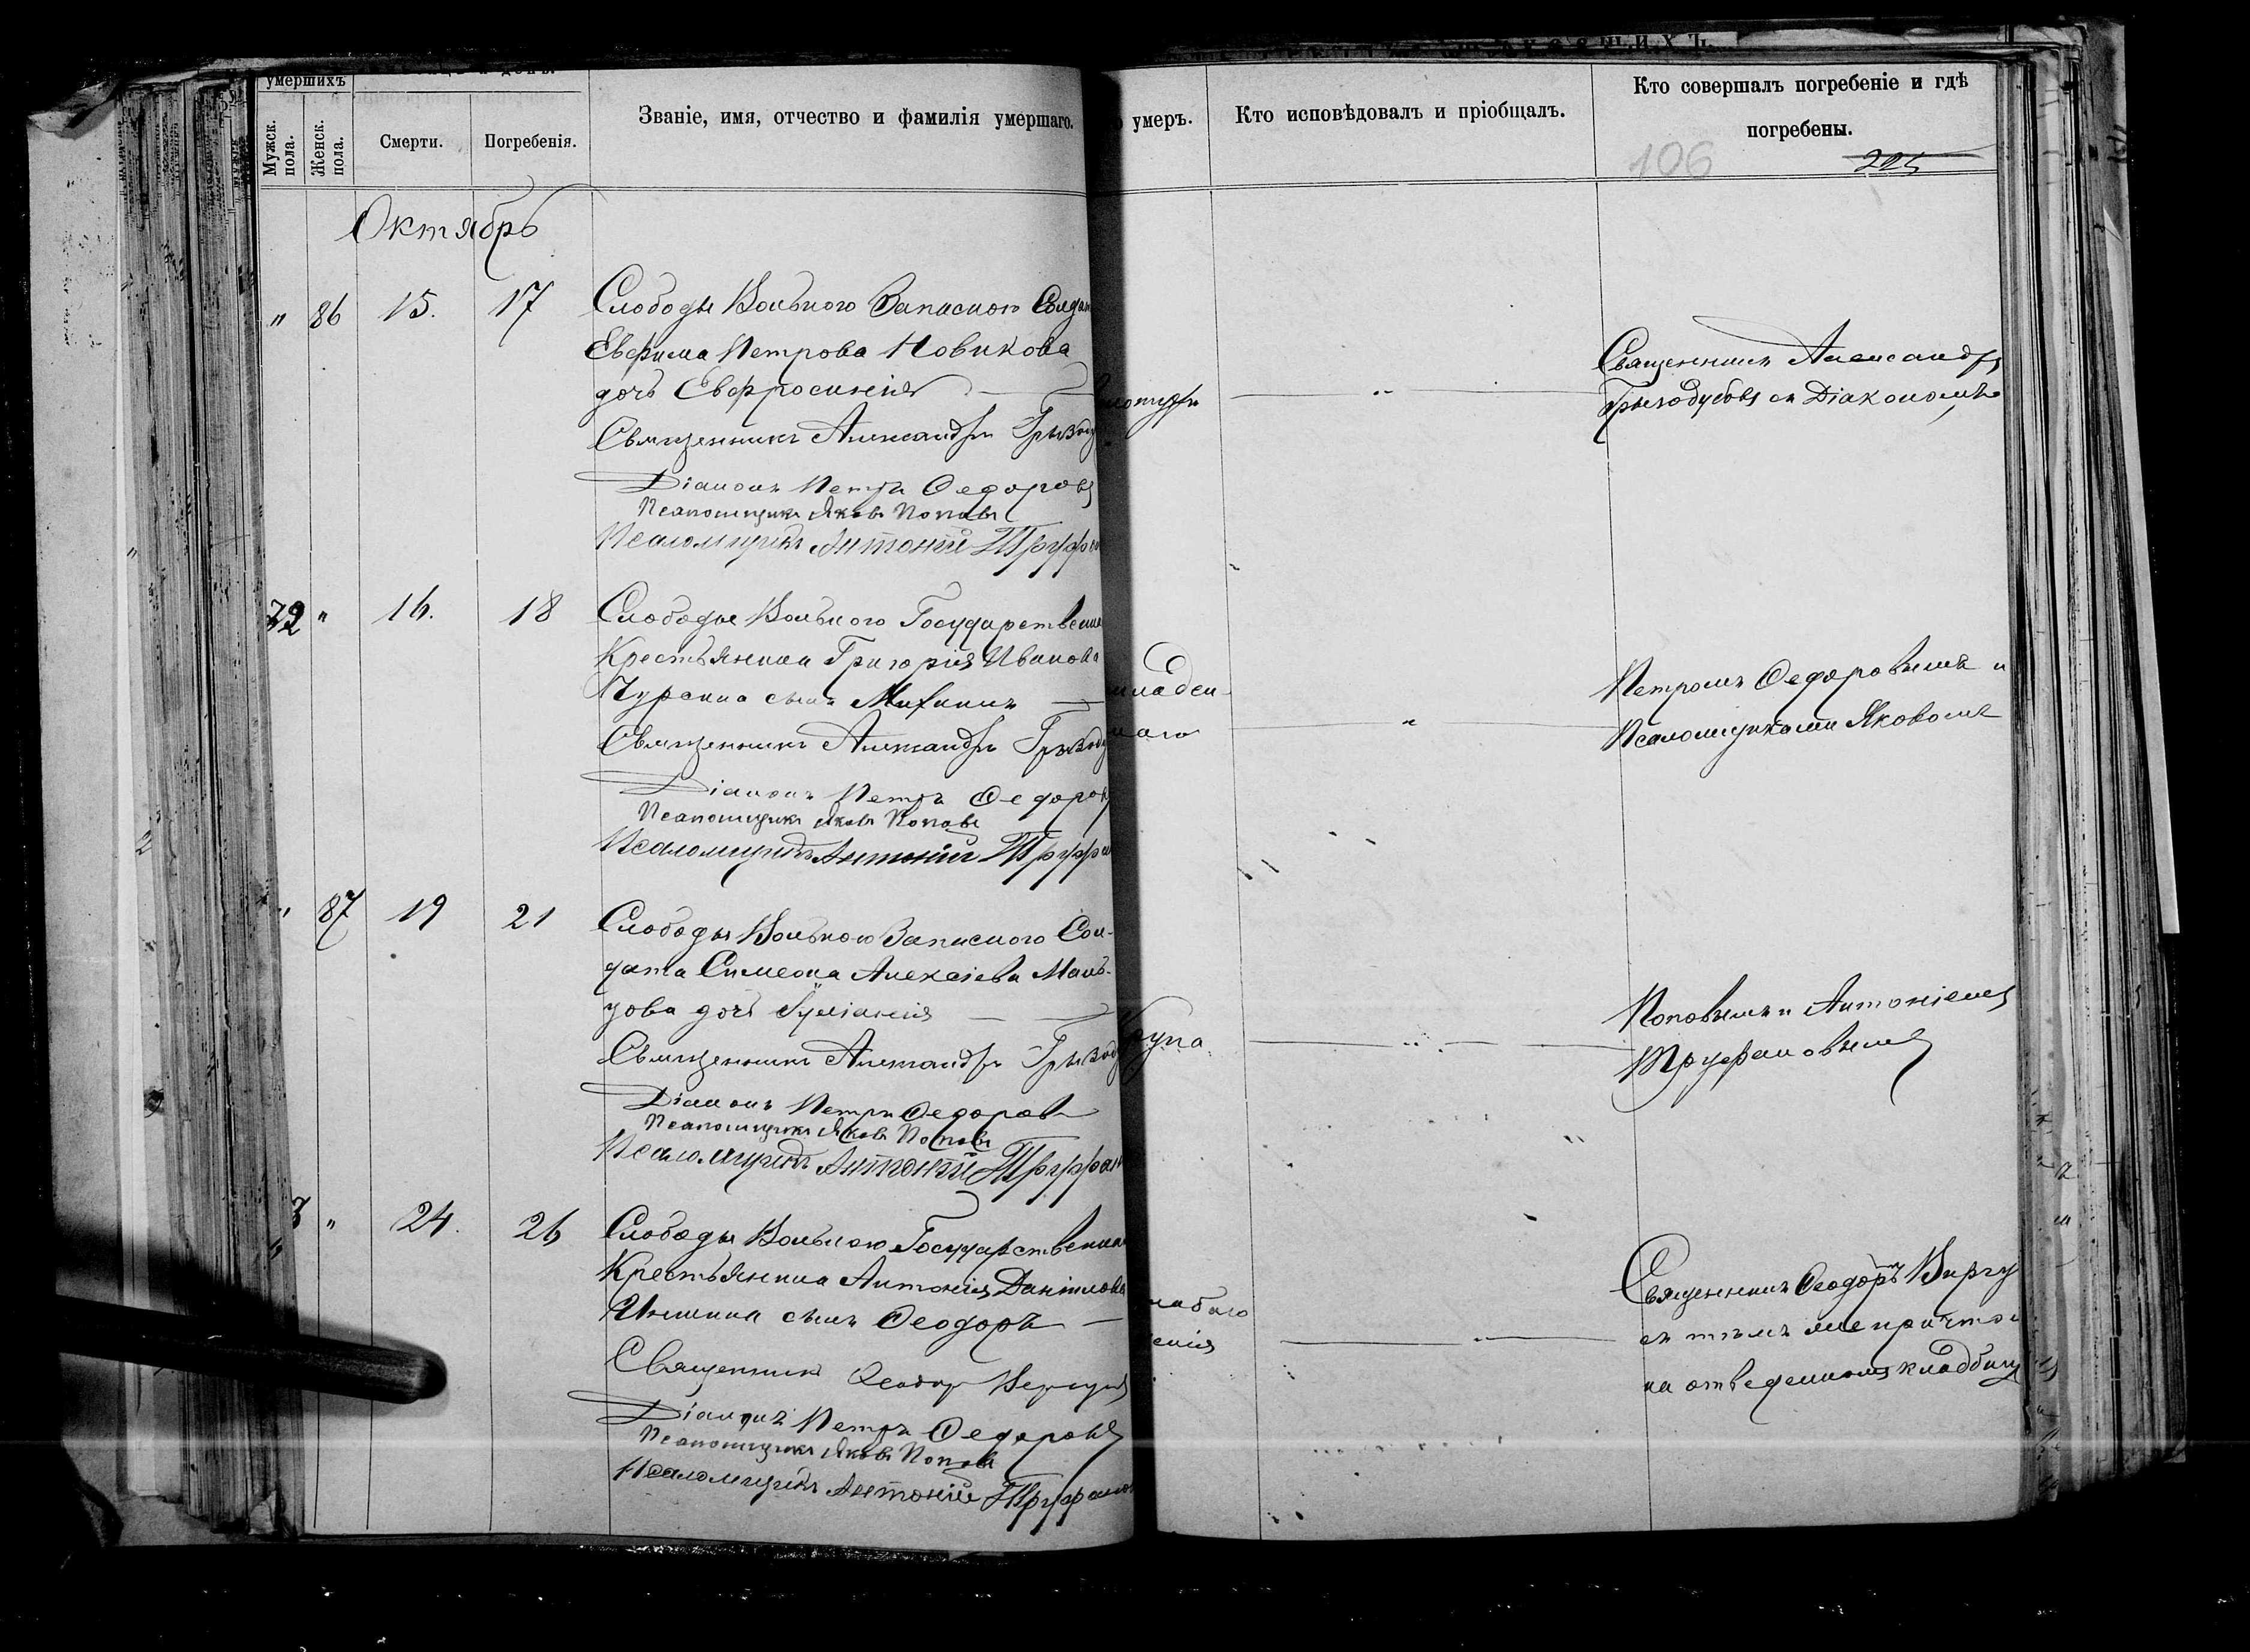 умершихъ
Мужск. пола.
Женск. пола.
Смерти.
Погребенія.
Званіе, имя, отчество и фамилія умершаго.
умеръ.
Кто исповѣдовалъ и пріобщалъ.
Кто совершалъ погребеніе и гдѣ
погребены.
106
225
Октябрь
" 86 15. 17
Слободы Вольного Запасного Солдат
Евфима Петрова Новикова
дочь Евфросинія
Священникъ Александръ
Діаконъ Петръ Ѳедоровъ
Псаломщикъ Яковъ Поповъ
Псаломщикъ Антоній
Священникъ Александръ
съ Діакономъ
" 16. 18
Слободы Вольного Государственна
Крестьянина Григорія Иванова
сынъ
младен
Священникъ Александръ
Діаконъ Петръ Ѳедоров
Псаломщикъ Яковъ Поповъ
Псаломщикъ Антоній
Петромъ Ѳедоровымъ и
Псаломщиками Яковомъ
" 87 19 21
Слободы Вольного Запасного Сол-
дата Симеона Алексіева Маль-
цова дочь Іуліанія
Священникъ Александръ
Діаконъ Петръ Ѳедоровъ
Псаломщикъ Яковъ Поповъ
Псаломщикъ Антоній
Поповымъ и Антоніемъ
Труфановымъ
" 24. 26
Слободы Вольного Государственна
Крестьянина Антонія Данілова
сынъ Ѳеодоръ
Священникъ Ѳеодор
Діаконъ Петръ Ѳедоровъ
Псаломщикъ Яковъ Поповъ
Псаломщикъ Антоній Труфанов
Священникъ Ѳеодоръ
съ тѣмъ же причтом
на отведенномъ кладбищ